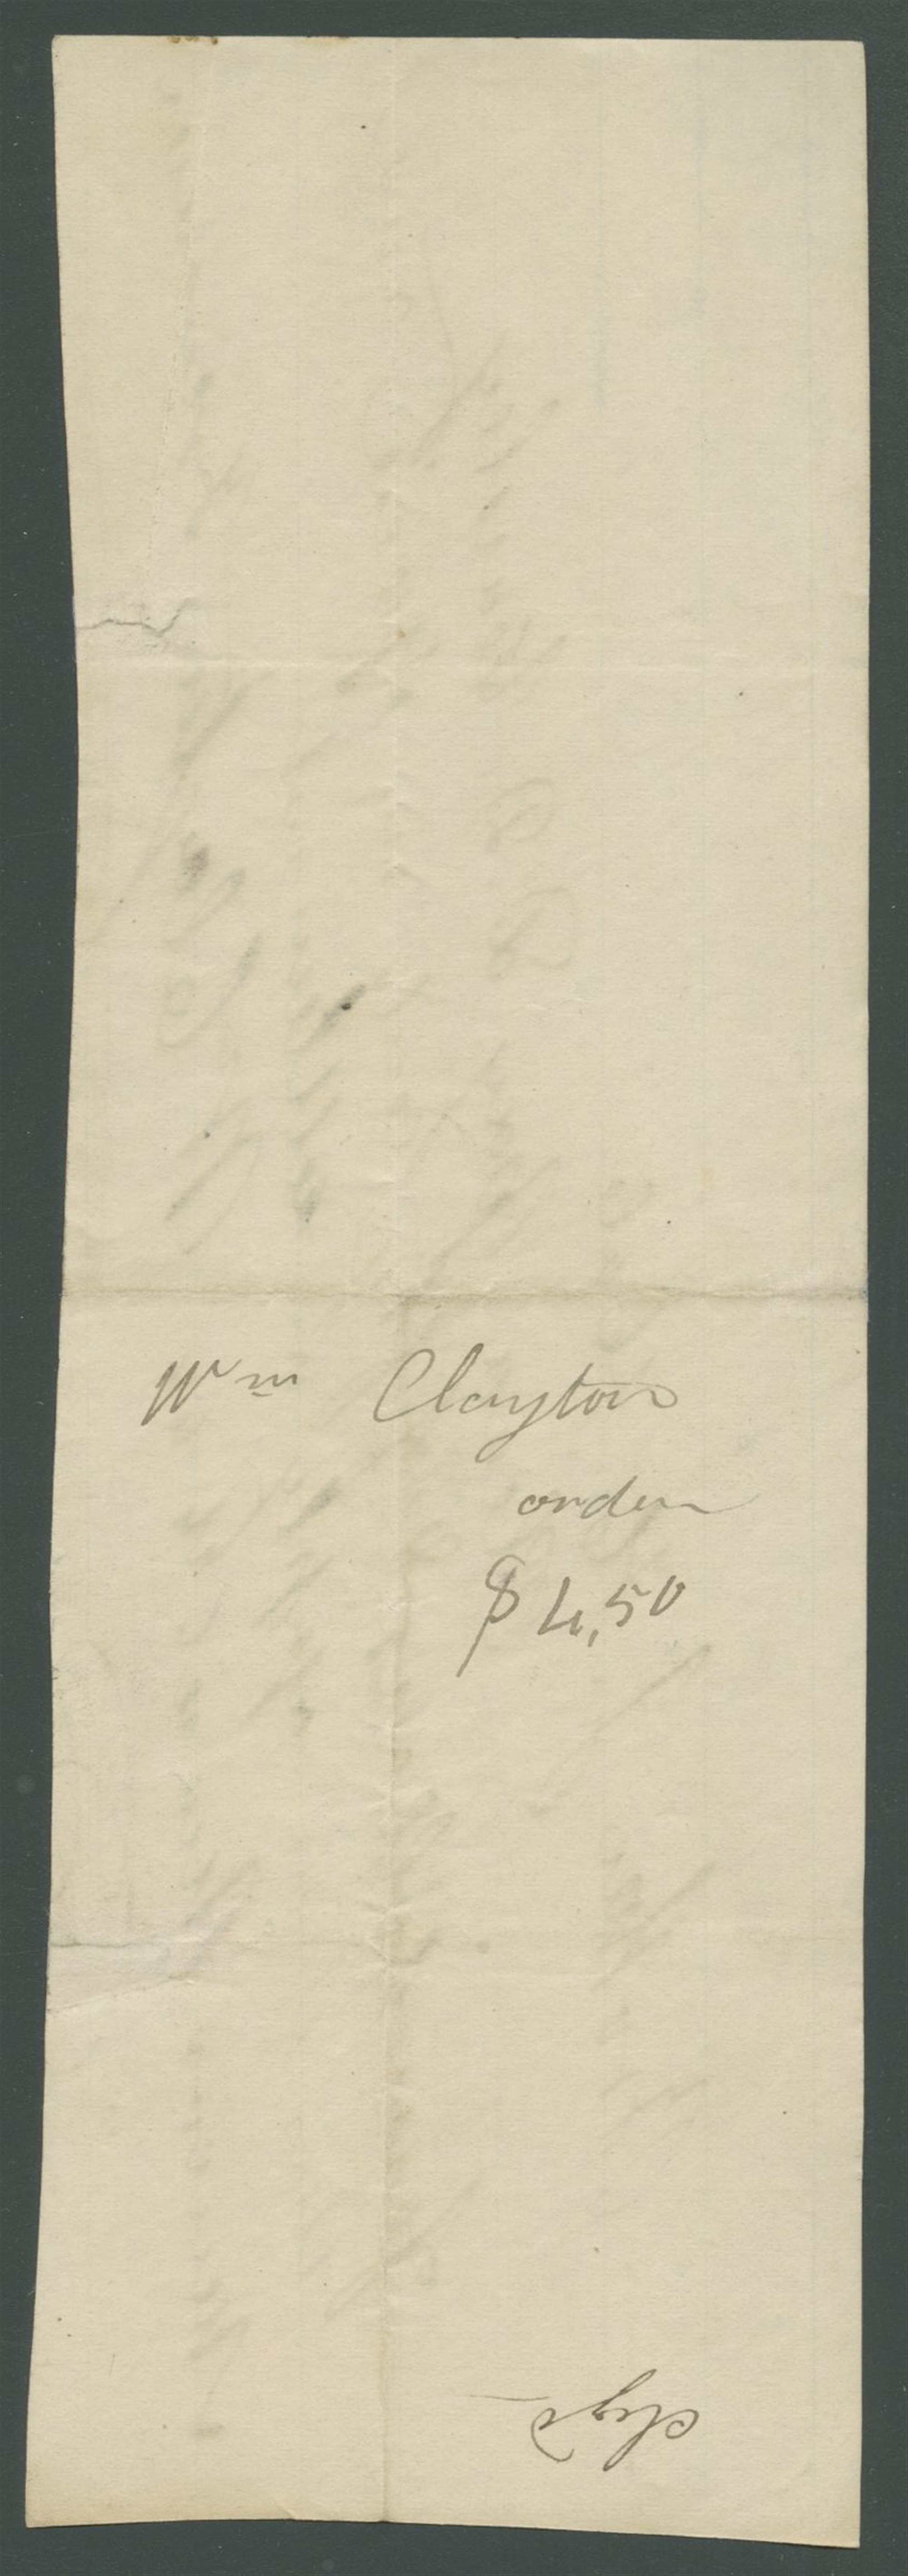 Wm Clayton
order
$4,50
chgd